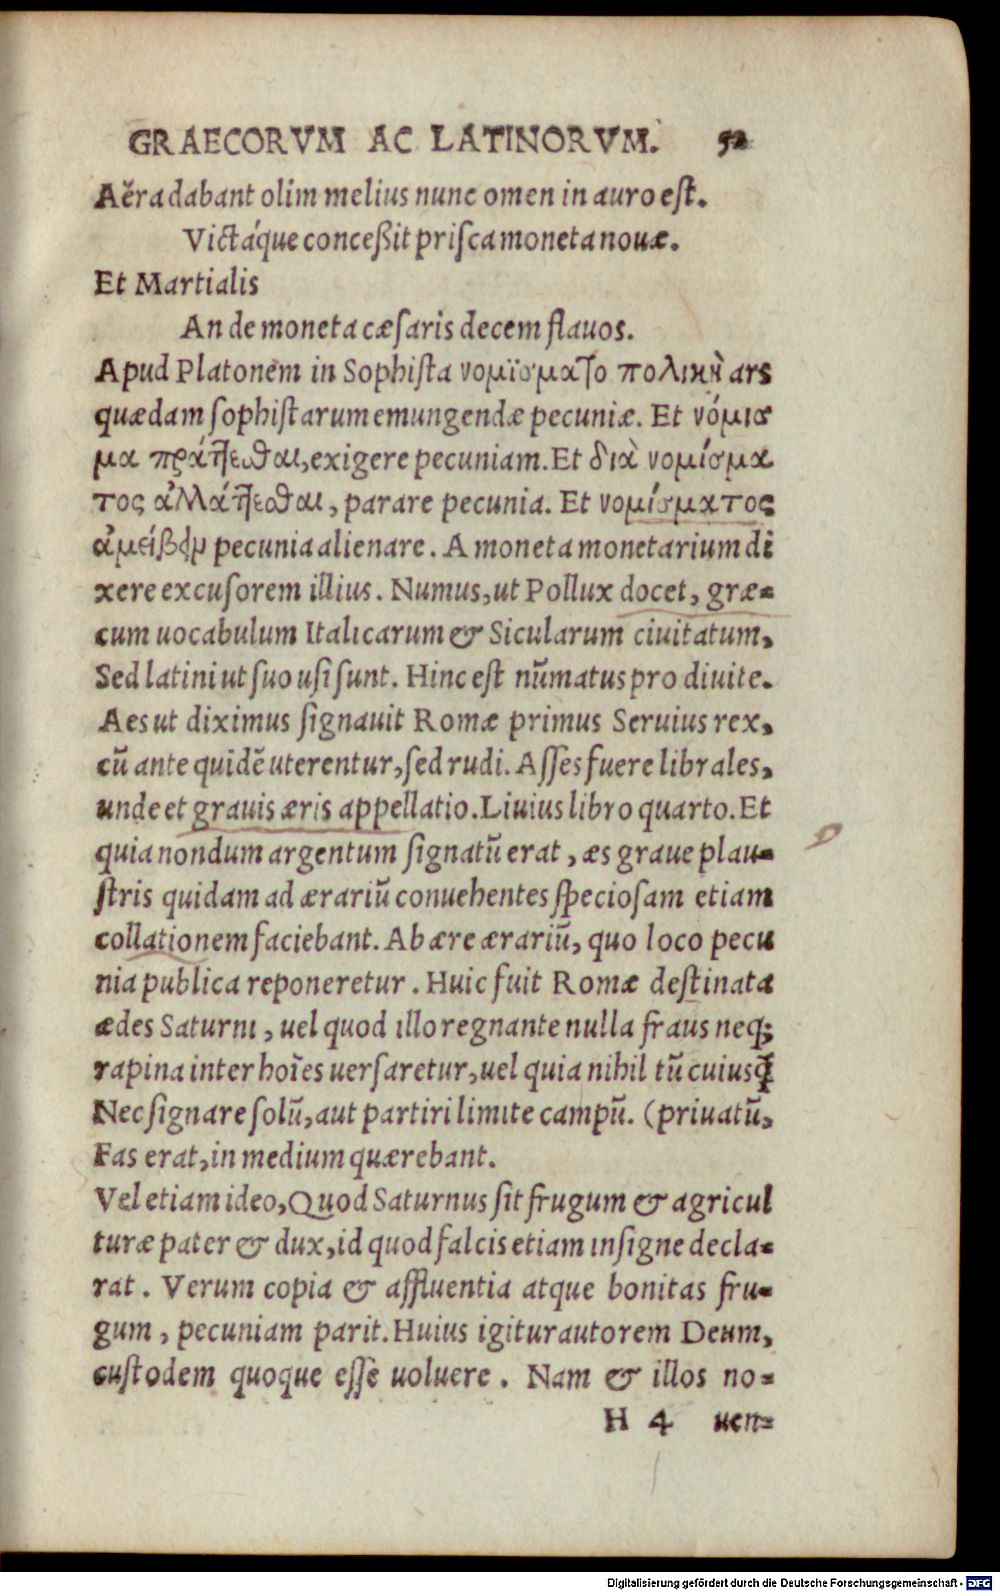 GRAECORVM AC LATINORVM. 52
Aëra dabant olim melius nunc omen in auro est.
Victáque conceßit prisca moneta nouæ.
Et Martialis
An de moneta cæsaris decem flauos.
Apud Platonem in Sophista νομϊσματο πολικὴ ars
quædam sophistarum emungendæ pecuniæ. Et νόμισ
μα πράτῆεωθαι, exigere pecuniam. Et διὰ νομίσμα
τος ἀλλάτῆεωθαι, parare pecunia. Et νομίσματος
ἀμείβειν pecunia alienare. A moneta monetarium di
xere excusorem illius. Numus, ut Pollux docet, græ-
cum uocabulum Italicarum & Sicularum ciuitatum,
Sed latini ut suo usi sunt. Hinc est nūmatus pro diuite.
Aes ut diximus signauit Romæ primus Seruius rex,
cū ante quidē uterentur, sed rudi. Asses fuere librales,
unde et grauis æris appellatio. Liuius libro quarto. Et
quia nondum argentum signatū erat, æs graue plau-
stris quidam ad ærariū conuehentes speciosam etiam
collationem faciebant. Ab ære ærariū, quo loco pecu
nia publica reponeretur. Huic fuit Romæ destinata
ædes Saturni, uel quod illo regnante nulla fraus neq;
rapina inter hoīes uersaretur, uel quia nihil tū cuiusq̃
Nec signare solū, aut partiri limite campū. (priuatū,
Fas erat, in medium quærebant.
Vel etiam ideo, Quod Saturnus sit frugum & agricul
turæ pater & dux, id quod falcis etiam insigne decla-
rat. Verum copia & affluentia atque bonitas fru-
gum, pecuniam parit. Huius igitur autorem Deum,
custodem quoque esse uoluere. Nam & illos no-
H 4 uen-
Digitalisierung gefördert durch die Deutsche Forschungsgemeinschaft - DFG